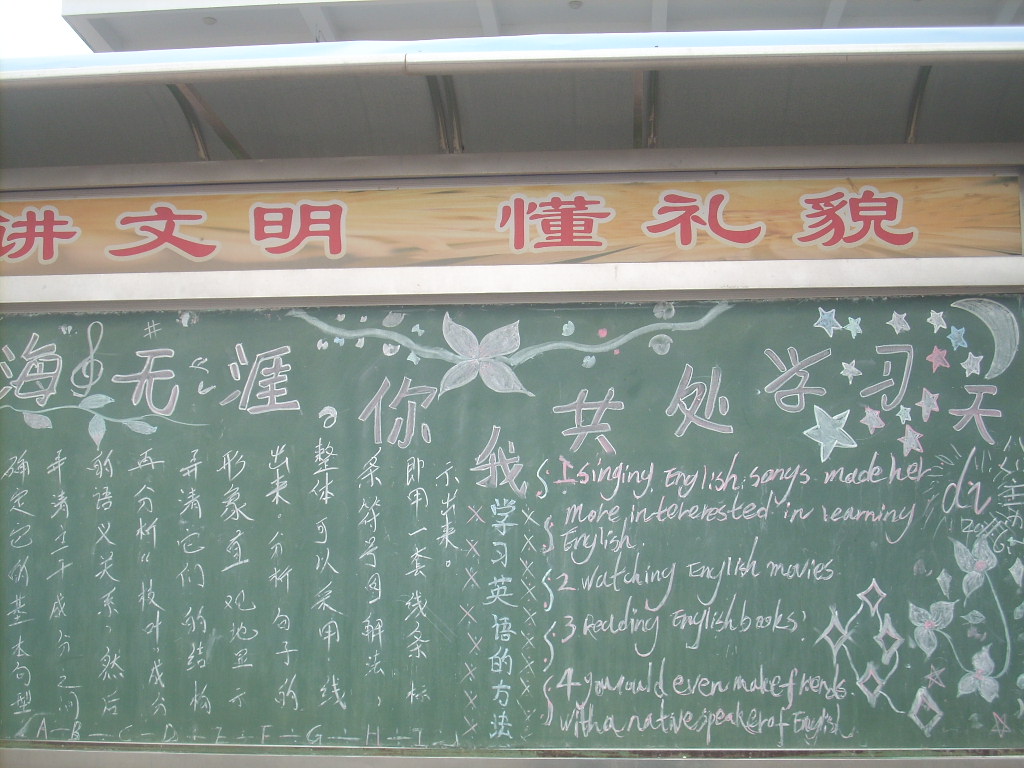 讲文明 懂礼貌
海无涯 你我共处学习天
学习英语的方法
1 singing English songs made her
more interested in learning
English.
2 watching English movies
3 Reading English books
4 you could even make friends
with a native speaker of English
示出来。
即用一套线条标
系符号图解法,
整体可以采用线
出来分析句子的
形象直观地显示
弄清它们的结构
再分析"枝叶"成分
的语义关系,然后
弄清主干成分之间
确定它的基本句型
A—B—C—D—E—F—G—H—I